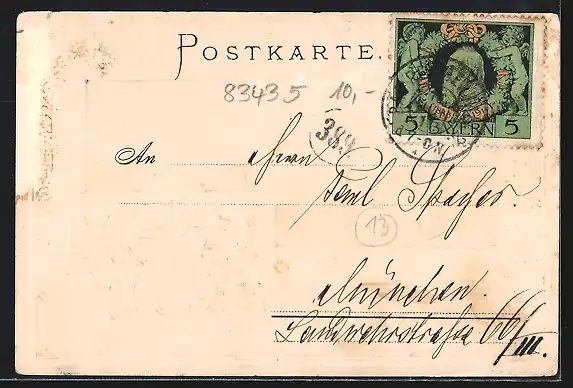 POSTKARTE.
83435 10,-
5 BAYERN 5
389
An Herrn
Paul
13
München.
Landwehrstraße 66/III.